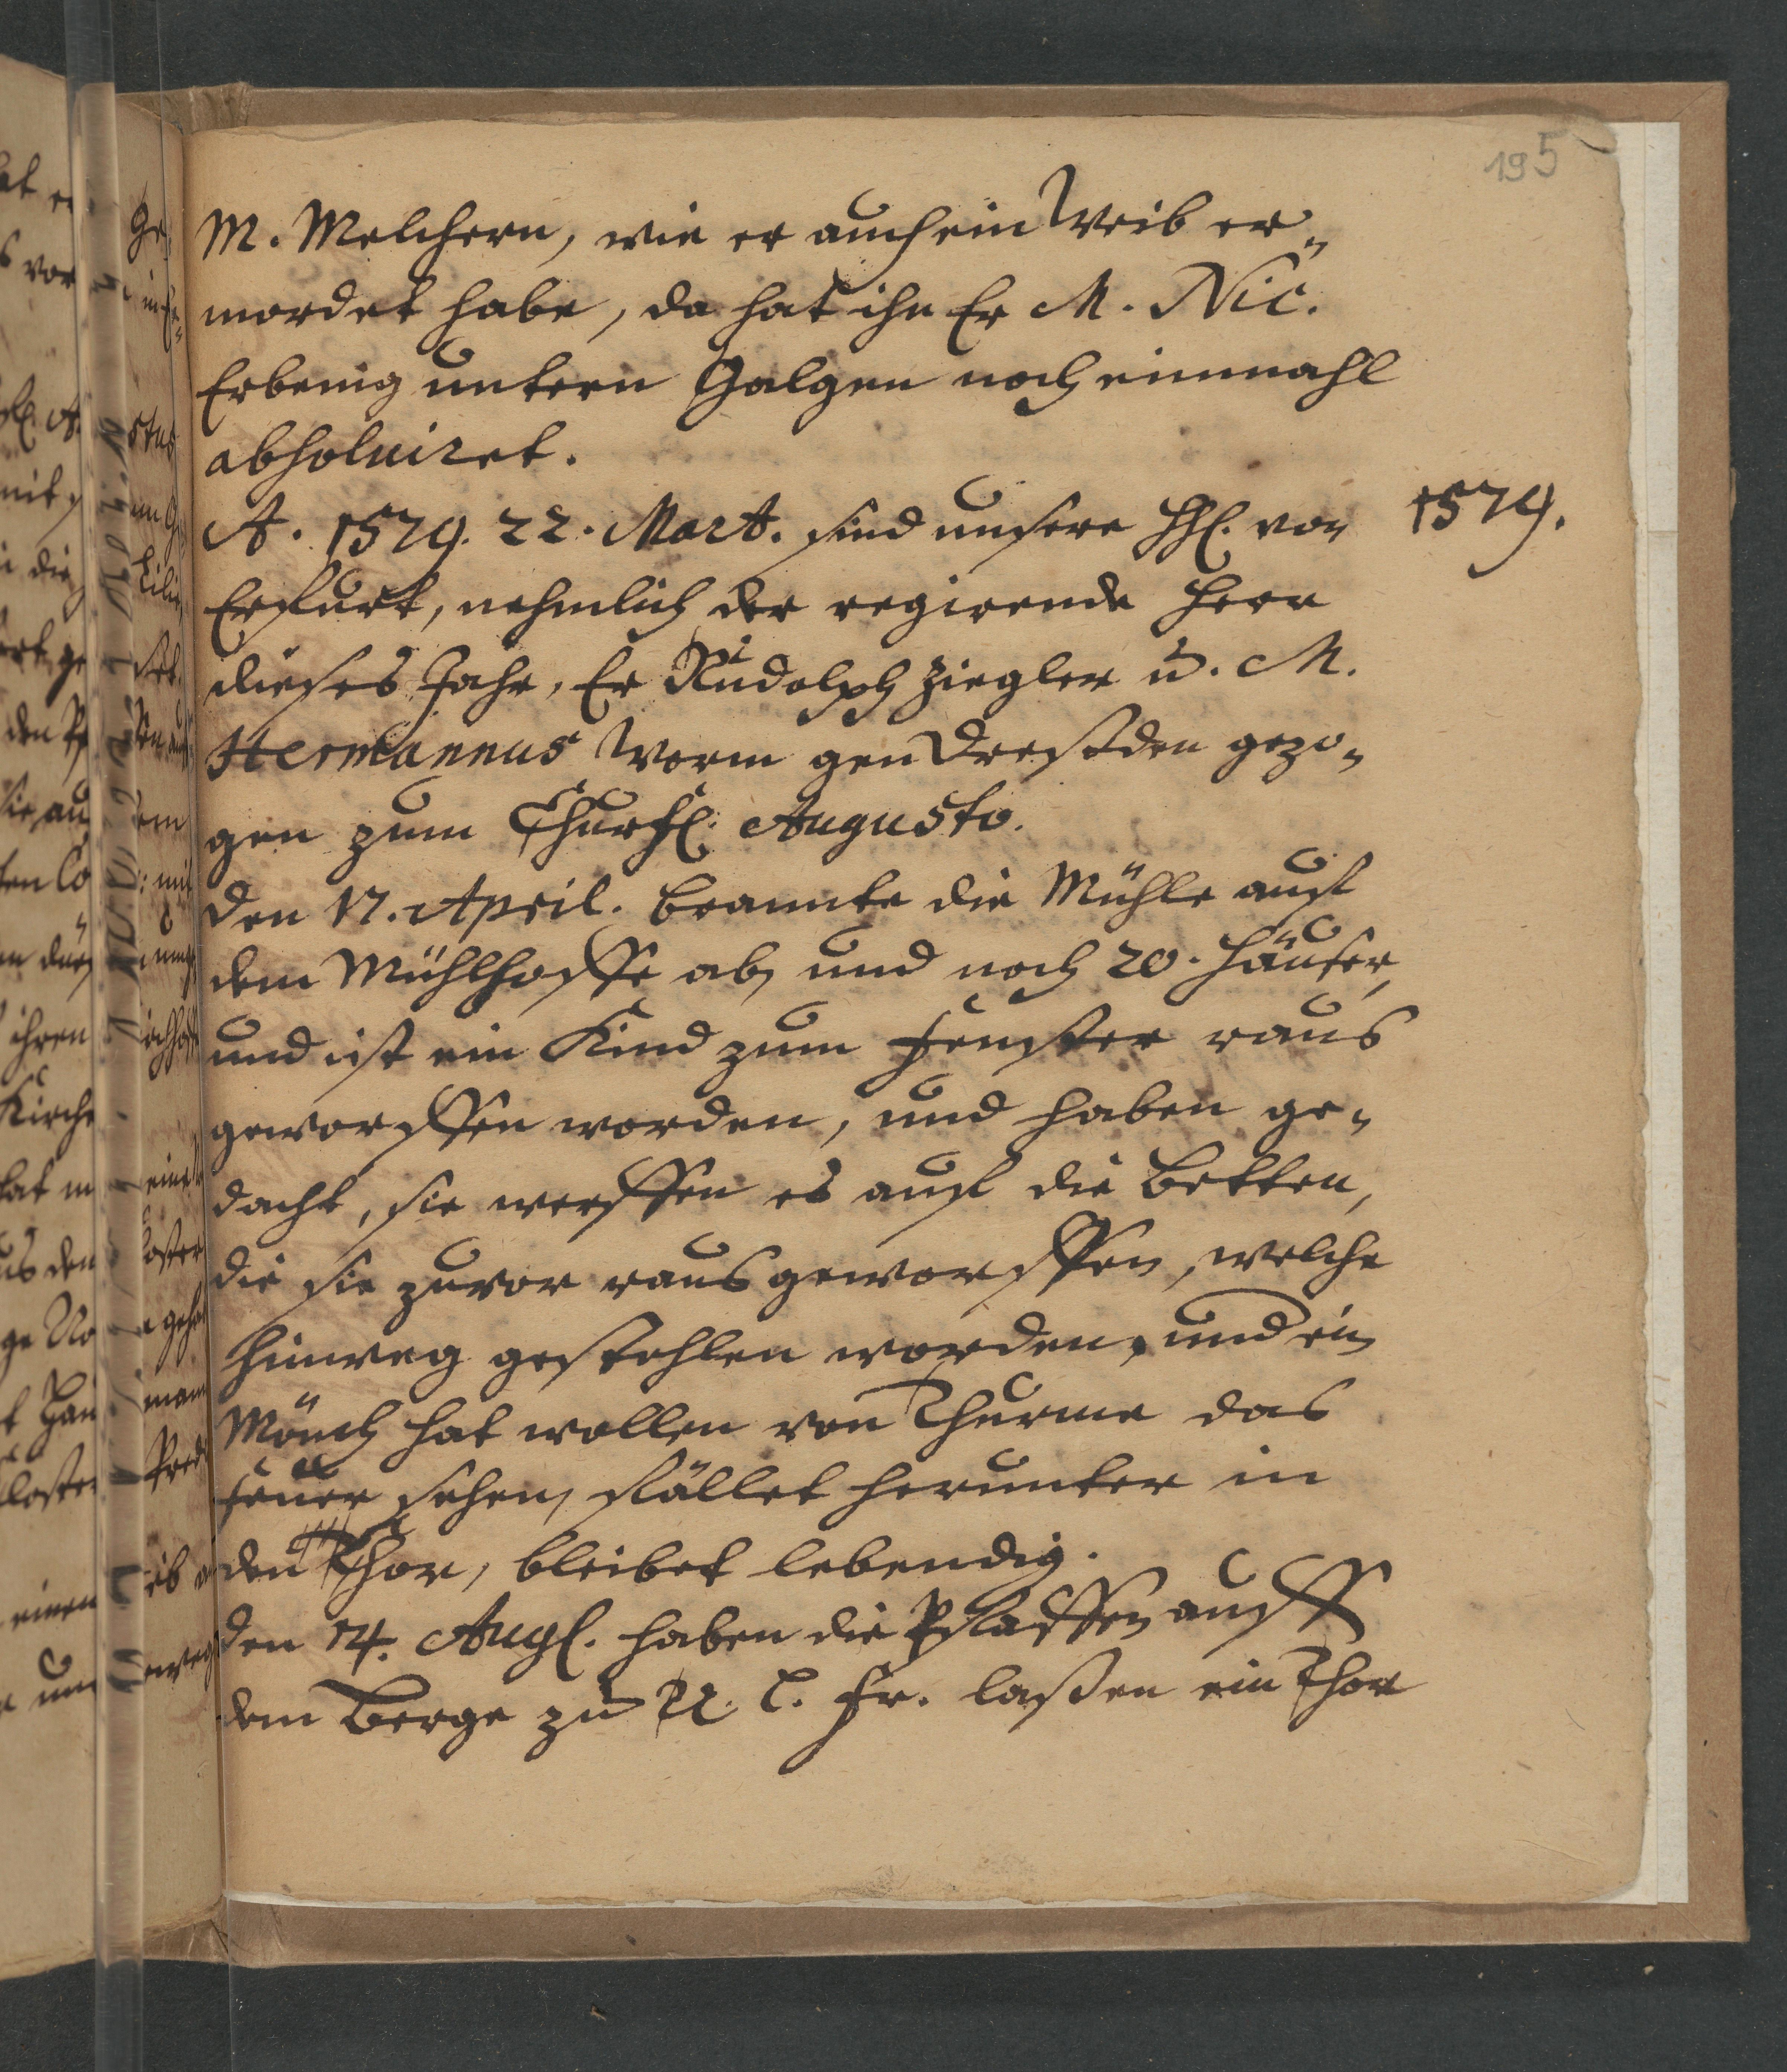 195
M. Melchern, wie er auch ein Weib er-
mordet habe, da hat ihn Er M. Nic.
Erbenig untern Galgen noch einmahl
absolviret.
A. 1579. 22. Mart. sind unsere HH. von
1579.
Erffurt, nehmlich der regirende Herr
dieses Jahr, Er Rudolph Ziegler u. M.
Hermannus Worm gen Dreßden gezo-
gen zum Churf. Augusto.
Den 17. April. brannte die Mühle auf
dem Mühlhoffe ab, und noch 20. Häuser,
und ist ein Kind zum Fenster raus
geworffen worden, und haben ge-
dacht, sie werffen es auf die Betten,
die sie zuvor raus geworffen, welche
hinweg gestohlen worden, und ein
Mönch hat wollen von Thurme das
Feuer sehen, fället herunter in
den Chor, bleibet lebendig.
Den 14. Aug. haben die Pfaffen auff
dem Berge zu U. L. Fr. laßen ein Thor